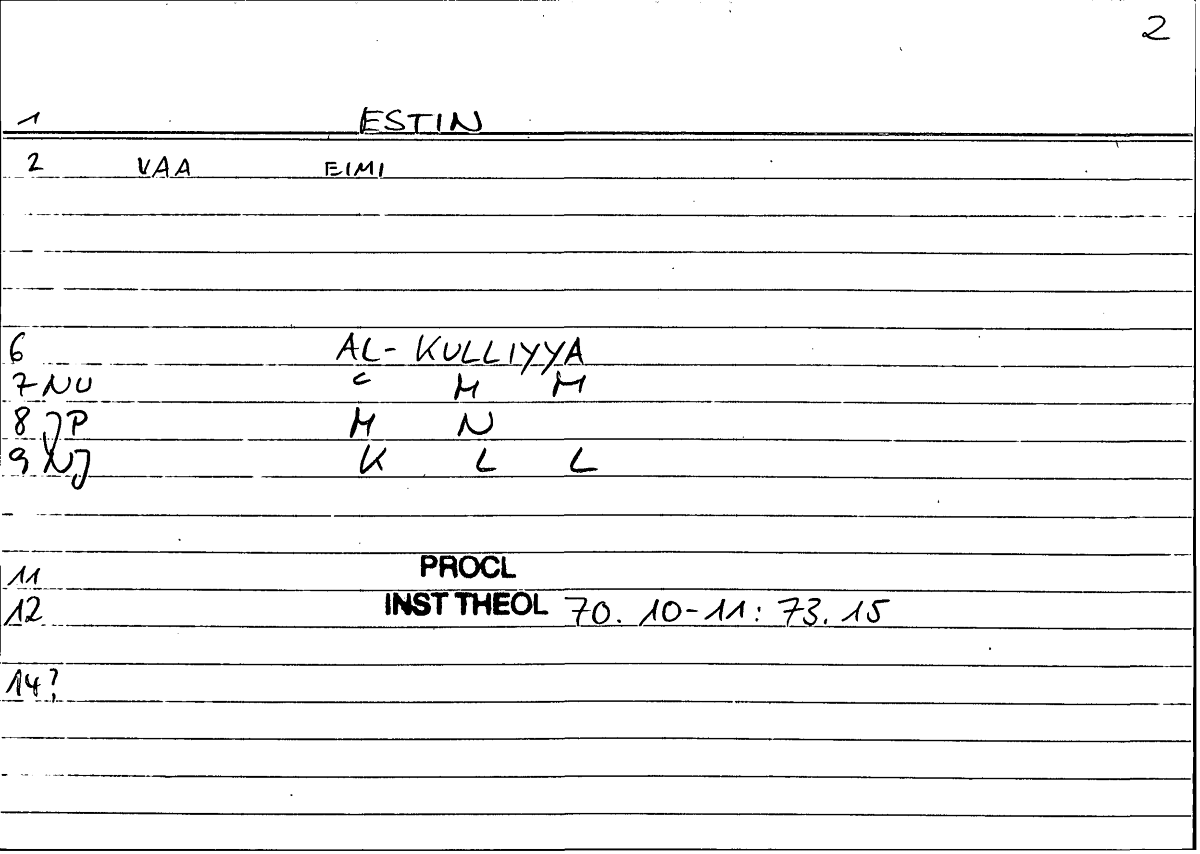 2
1 ESTIN
2 VAA EIMI
6 AL-KULLIYYA
7 NU C M M
8 JP M N
9 NJ K L L
11 PROCL
12 INST THEOL 70. 10-11: 73. 15
14?